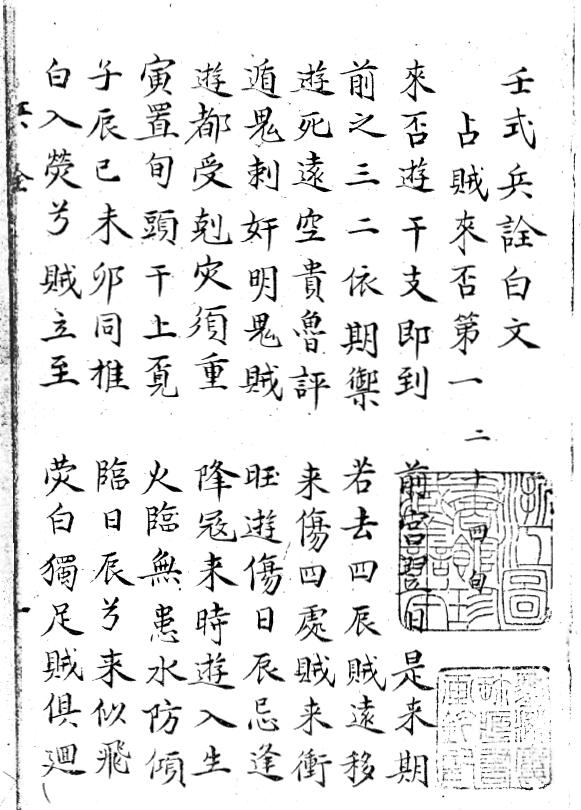 壬式兵詮白文
占賊來否第一 二十四句
來否遊干支即到 前宮翌日是来期
前之三二依期禦 若去四辰賊遠移
遊死遠空貴魯評 来傷四處賊来衝
遁鬼刺奸明鬼賊 旺遊傷日辰忌逢
遊都受剋灾須重 降冦来時遊入生
寅置旬頭干上覓 火臨無患水防傾
子辰巳未卯同推 臨日辰兮来似飛
白入熒兮賊立至 荧白獨足賊俱廻